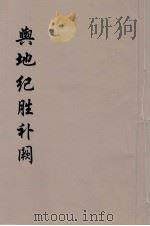 輿地纪胜补阙
www.mtoou.info